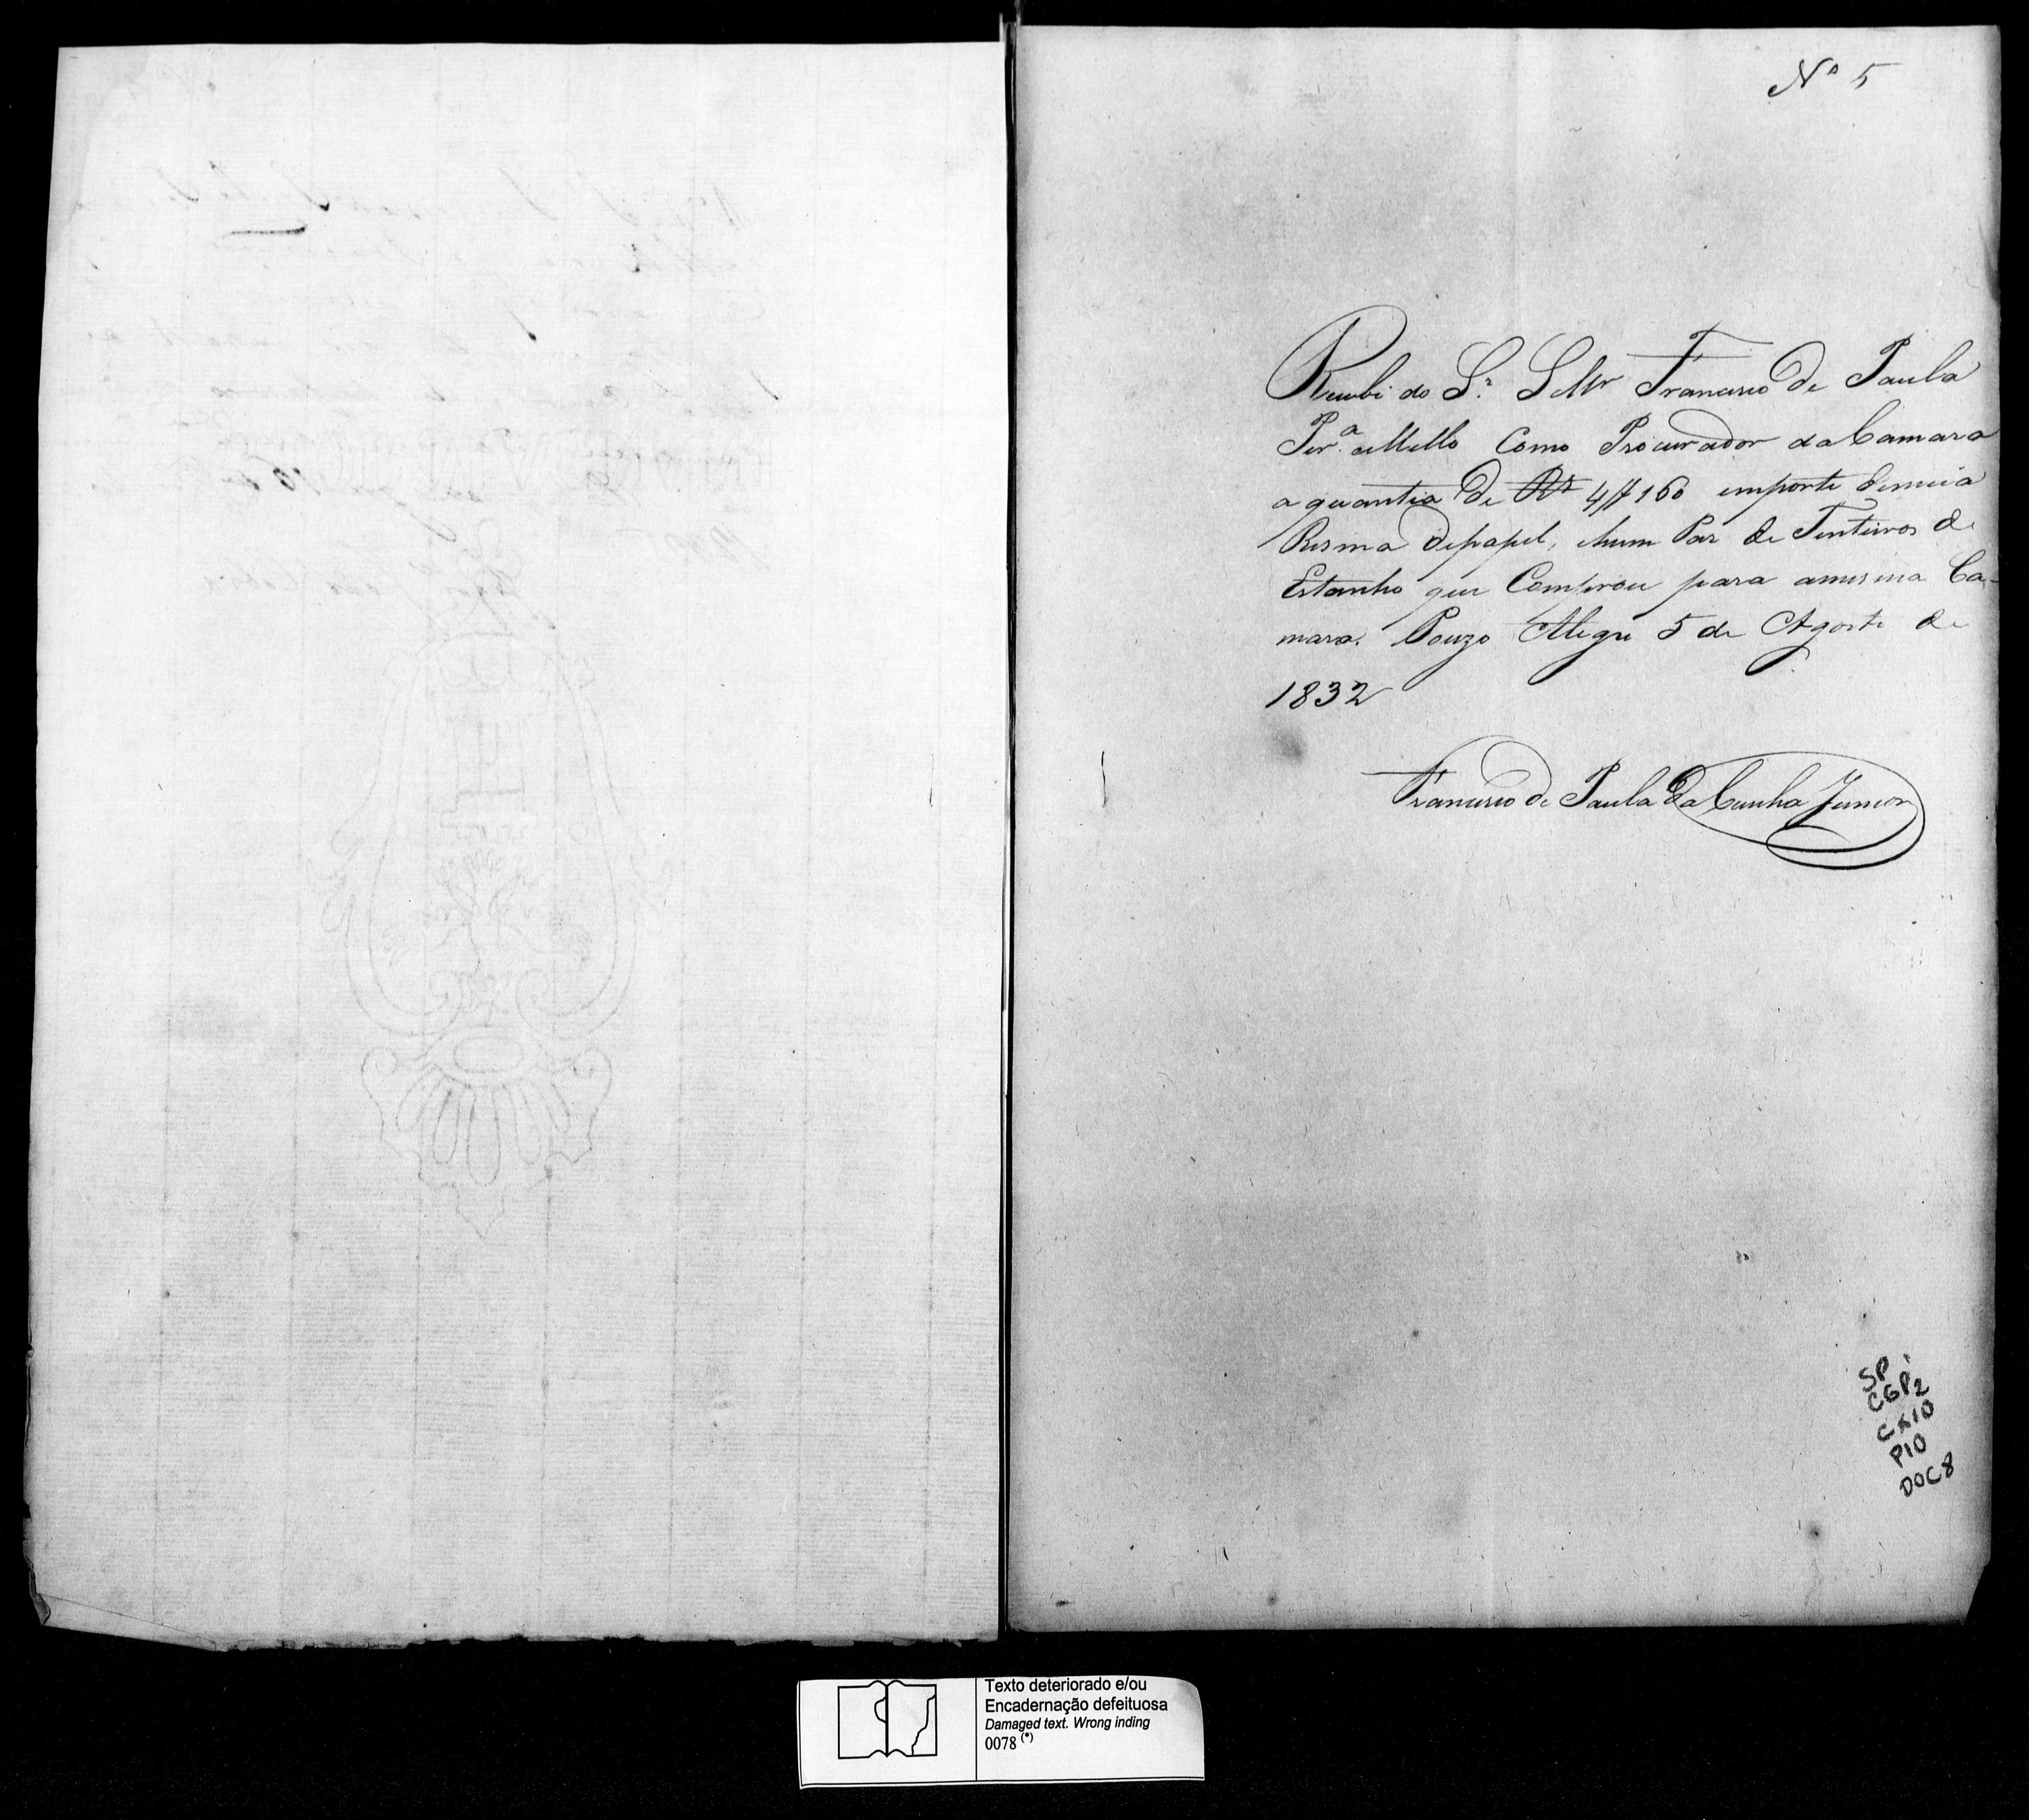 Nº 5
Recebi do Sr. S Mr Francisco de Paula
Per.ª eMello Como Procurador da Camara
a quantia de Rs 4$160 emporte de meia
Resma de papel, ehum Par de Tinteiros de
Estanho que Comprou para amesma Ca-
mara. Pouzo Alegre 5 de Agosto de
1832
Francisco de Paula da Cunha Junior
SP
CGP2
CX10
P10
DOC8
Texto deteriorado e/ou
Encadernação defeituosa
Damaged text. Wrong inding
0078 (*)